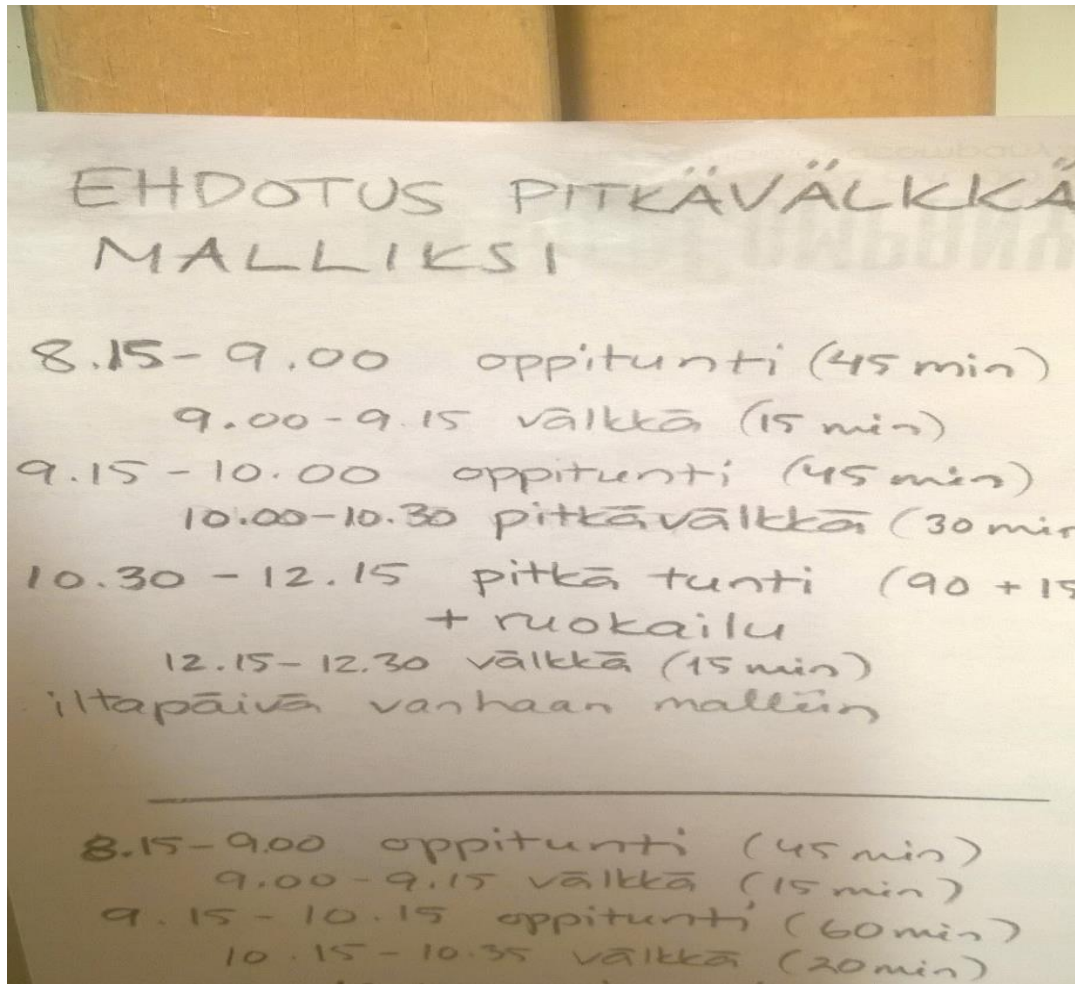 EHDOTUS PITKÄVÄLKKÄ
MALLIKSI
8.15-9.00 oppitunti (45 min)
9.00-9.15 välkkä (15 min)
9.15-10.00 oppitunti (45 min)
10.00-10.30 pitkävälkkä (30 min
10.30-12.15 pitkä tunti (90 + 15
+ ruokailu
12.15-12.30 välkkä (15 min)
iltapäivä vanhaan malliin
8.15-9.00 oppitunti (45 min)
9.00-9.15 välkkä (15 min)
9.15-10.15 oppitunti (60 min)
10.15-10.35 välkkä (20 min)